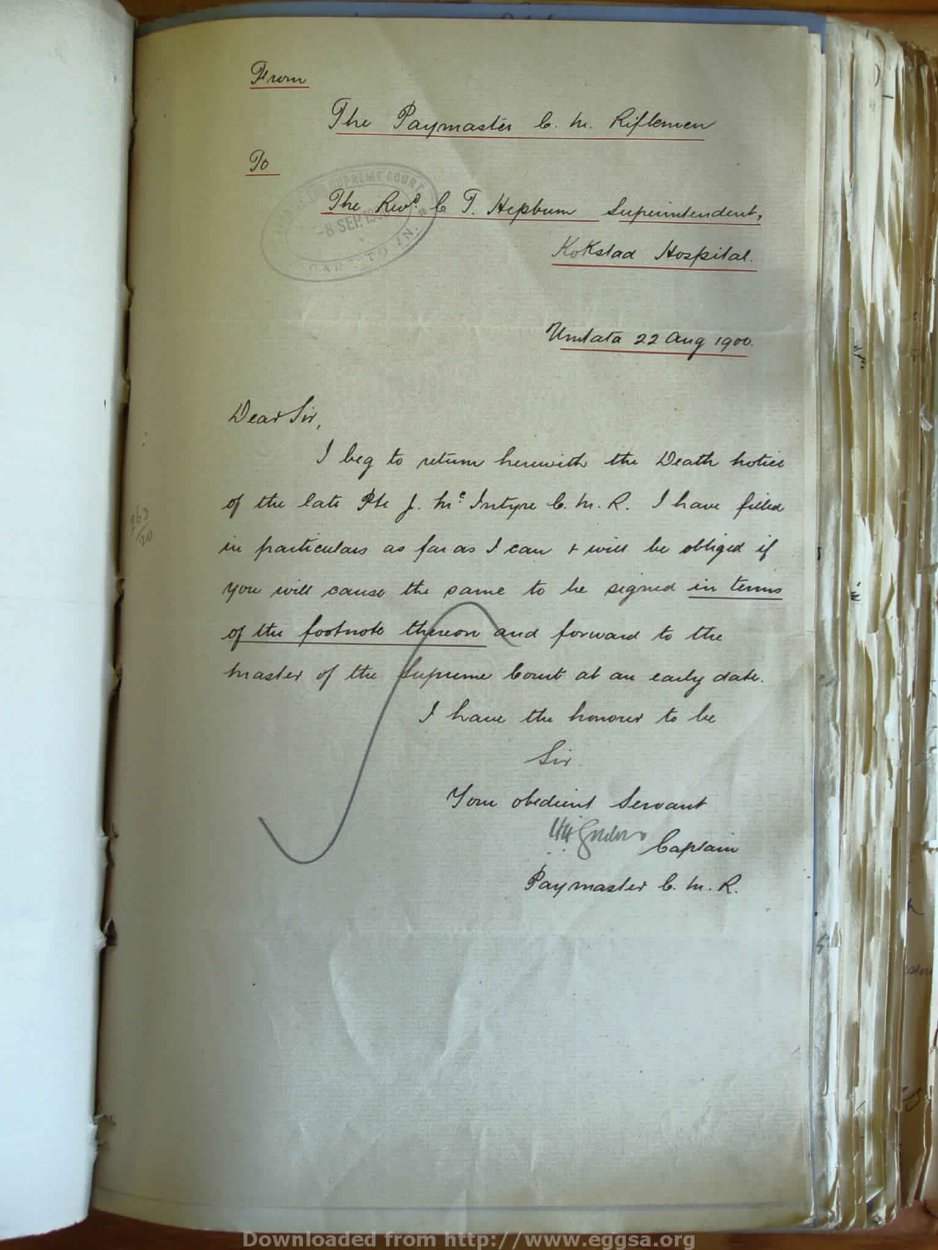 From
The Paymaster C. M. Riflemen
To
SUPREME COURT
-8 SEP.
The Revd. C T. Hepburn Superintendent,
Kokstad Hospital.
Umtata 22 Aug 1900.
Dear Sir,
I beg to return herewith the Death Notice
of the late Pte J. Mc Intyre C. M. R. I have filled
in particulars as far as I can & will be obliged if
you will cause the same to be signed in terms
of the footnote thereon and forward to the
Master of the Supreme Court at an early date.
I have the honour to be
Sir
Your obedient Servant
Captain
Paymaster C. M. R.
Downloaded from http://www.eggsa.org